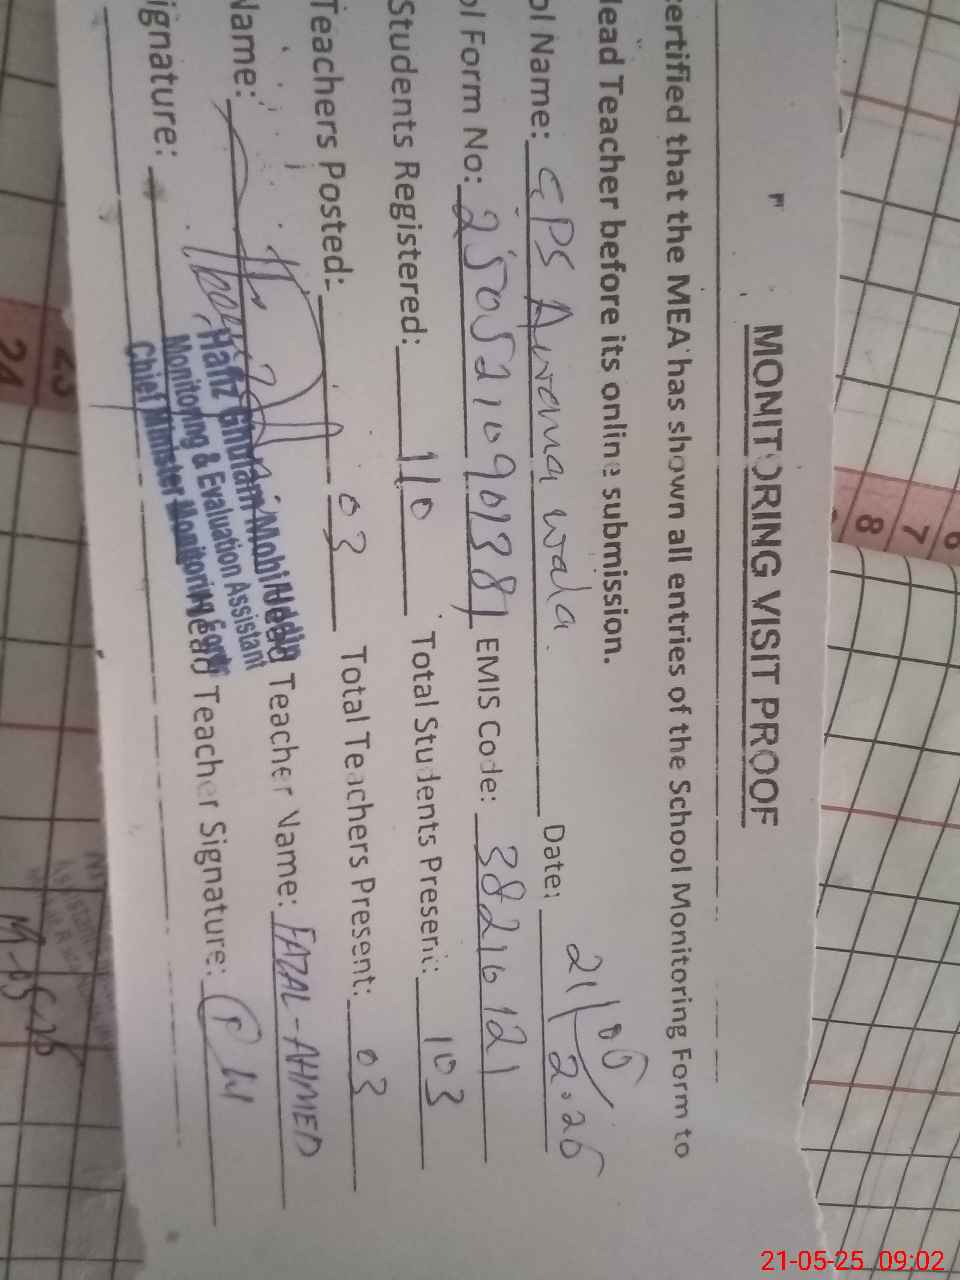 MONITORING VISIT PROOF
ertified that the MEA has shown all entries of the School Monitoring Form to
lead Teacher before its online submission.
ol Name: GPS Awana wala. Date: 21/05/2025
ol Form No: 2505210901381 EMIS Code: 38210121
Students Registered: 110 Total Students Present: 103
Teachers Posted: 03 Total Teachers Present: 03
Name: Head Teacher Name: FAZAL-AHMED
ignature: Head Teacher Signature:
Hafiz Ghulam Mohi Uddin
Monitoring & Evaluation Assistant
Chief Minister Monitoring Force
6
7
8
23
24
21-05-25 09:02